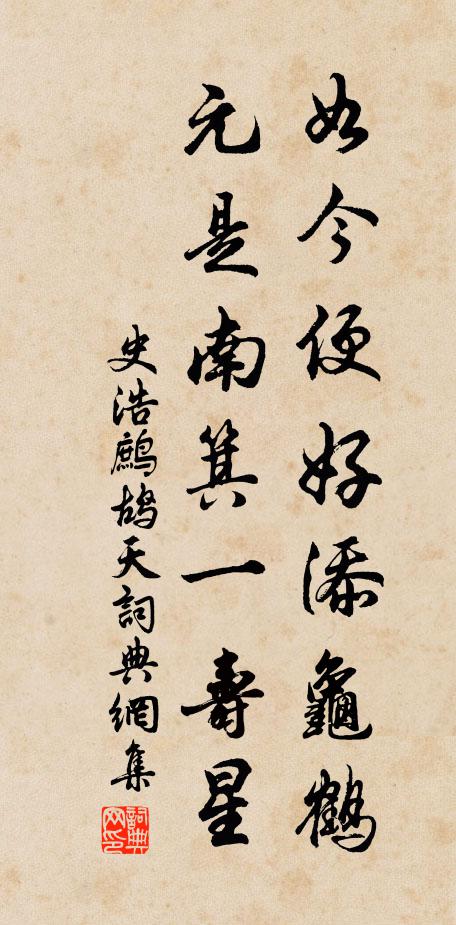 如今便好添龜鶴
元是南箕一壽星
史浩鷓鴣天詞典網集
詞典網印